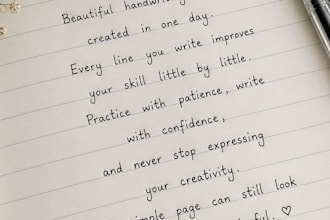 Beautiful handwriting
created in one day.
Every line you write improves
your skill little by little.
Practice with patience, write
with confidence,
and never stop expressing
your creativity.
simple page can still look
♡